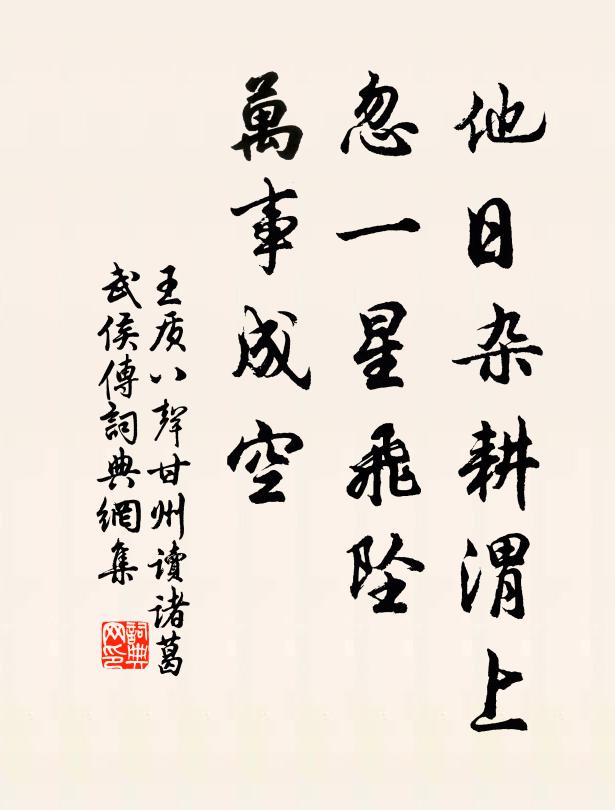 他日杂耕渭上
忽一星飛坠
萬事成空
王质八聲甘州讀諸葛
武侯傳詞典網集
詞典
网印